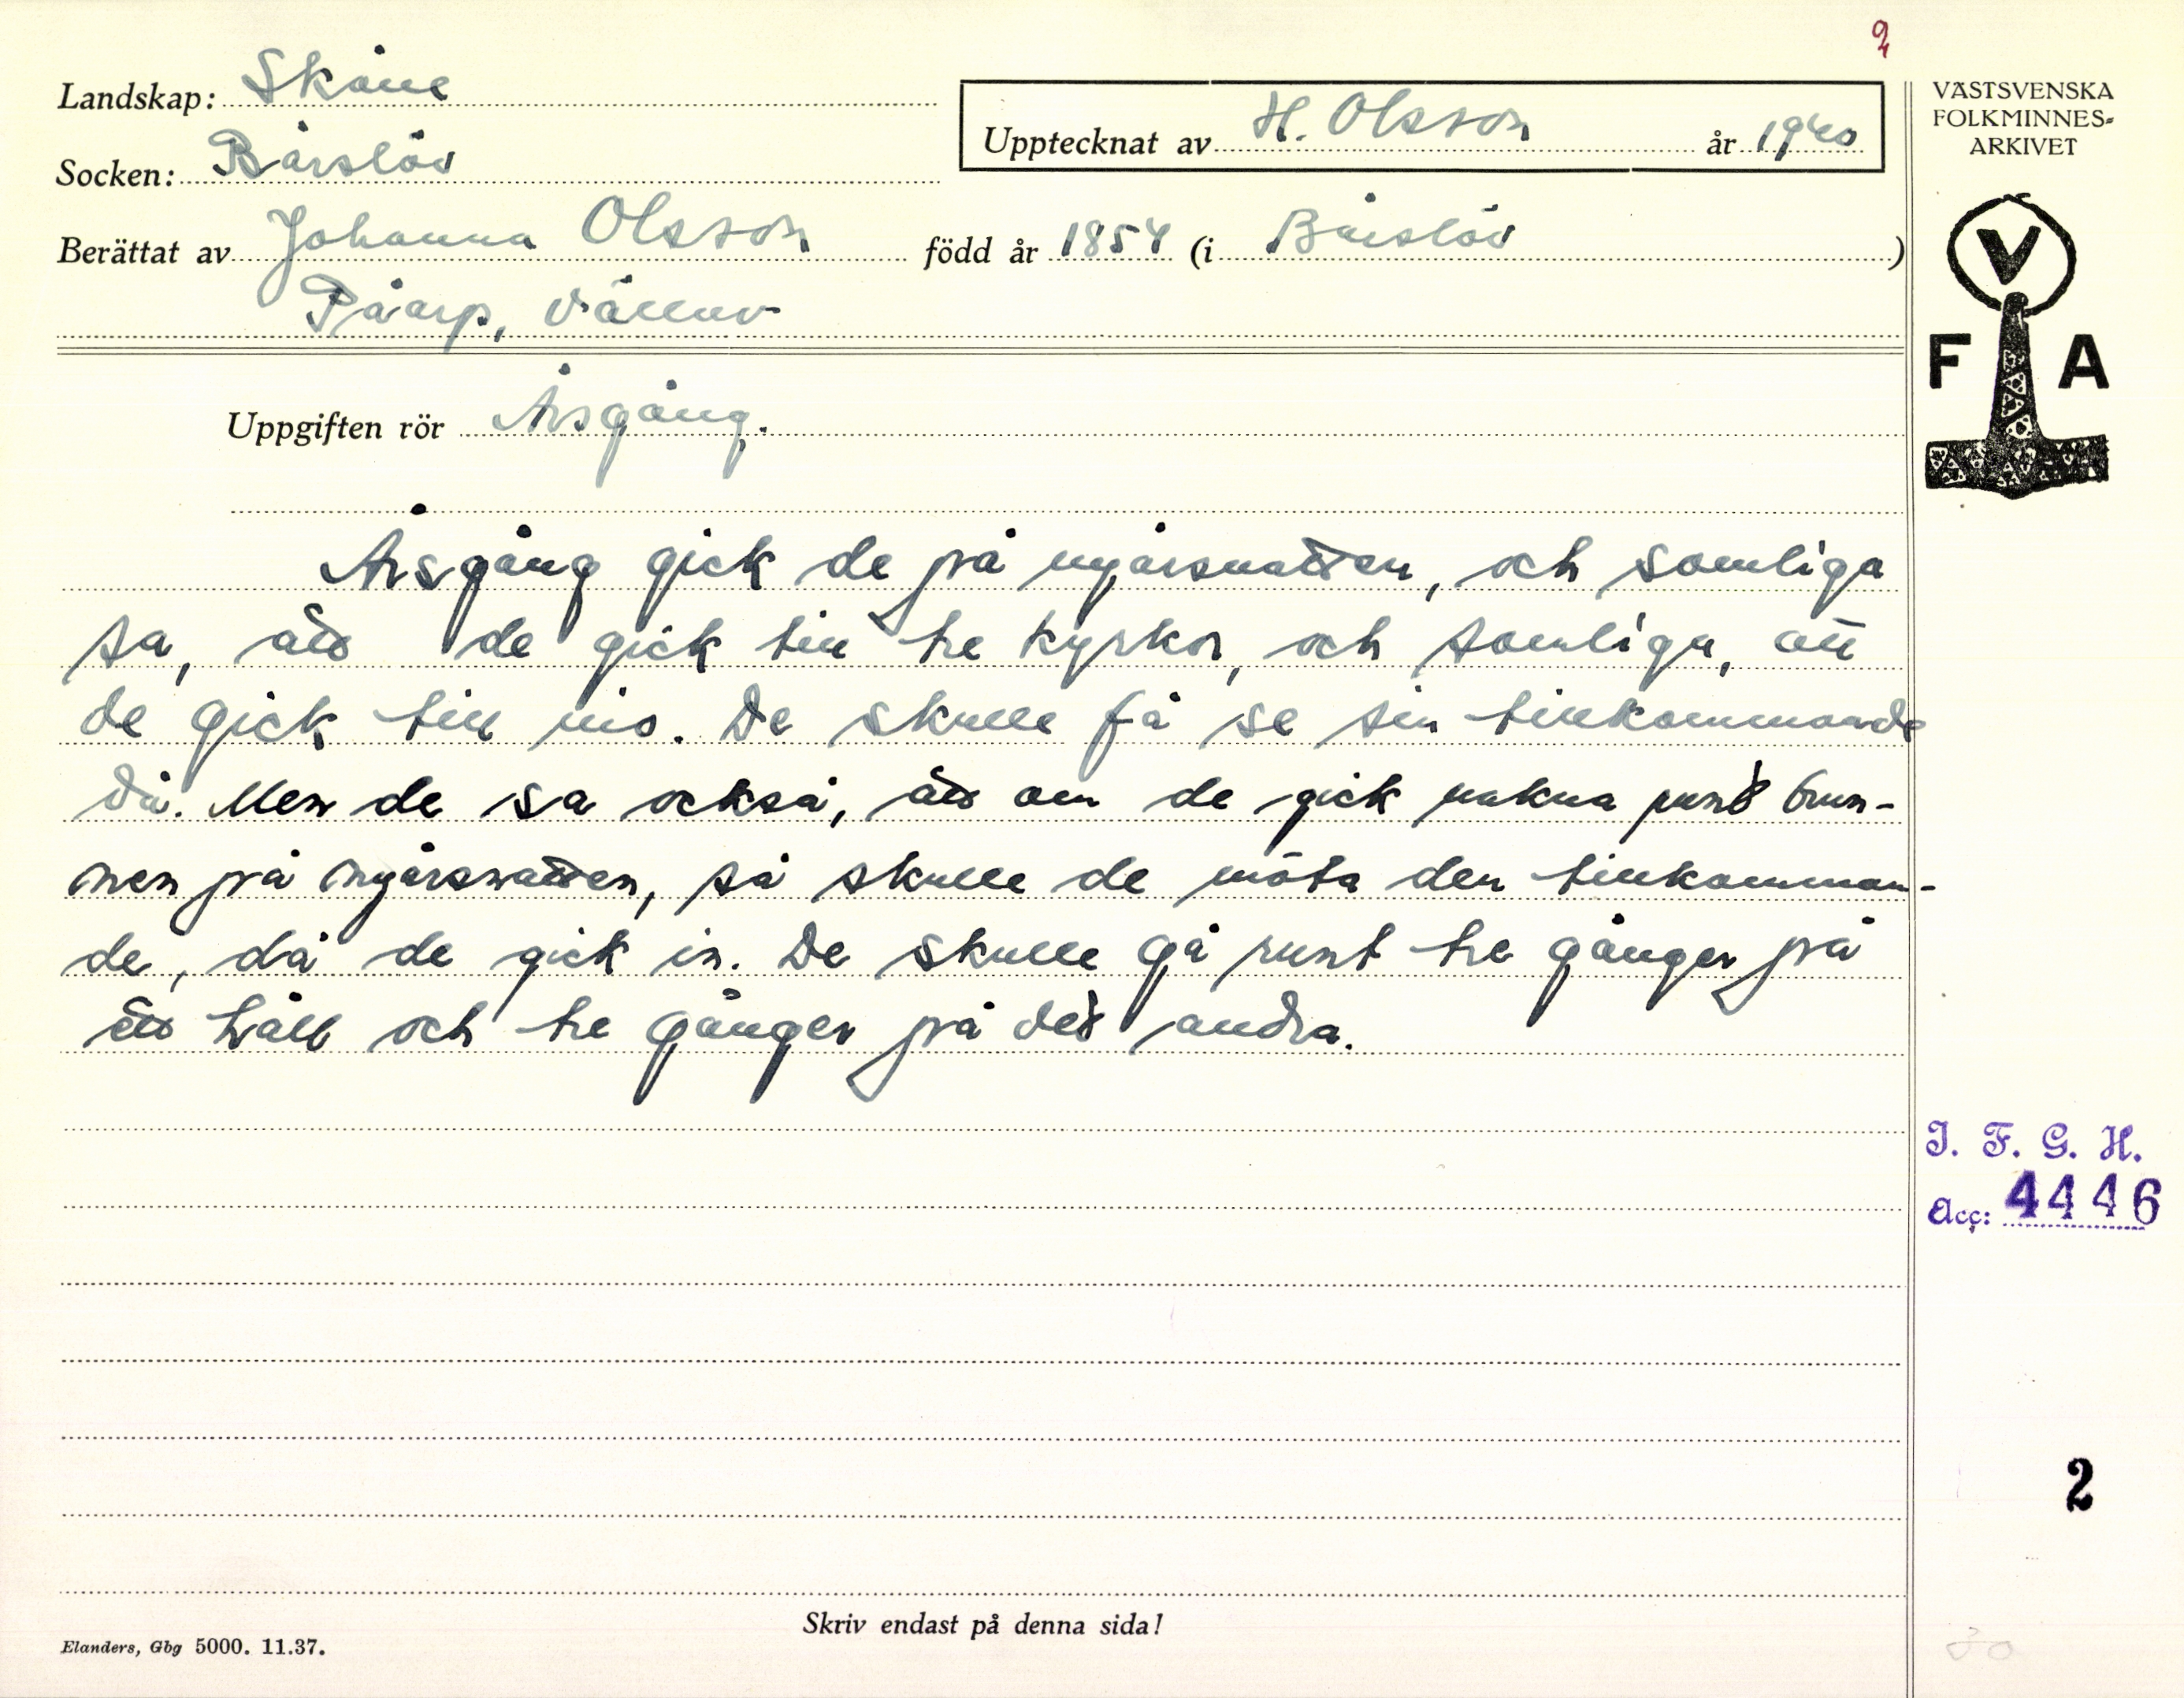 2
Landskap: Skåne
Socken: Bårslöv
Upptecknat av H. Olsson år 1940
VÄSTSVENSKA
FOLKMINNES=
ARKIVET
Berättat av Johanna Olsson född år 1854 (i Bårslöv)
Påarp, Välluv
V
F A
Uppgiften rör Årsgång.
Årsgång gick de på nyårsnatten, och somliga
sa, att de gick till tre kyrkor, och somliga, att
de gick till nio. De skulle få se sin tillkommande
då. Men de sa också, att om de gick nakna runt brun-
nen på nyårsnatten, så skulle de möta den tillkomman-
de, då de gick in. De skulle gå runt tre gånger på
ett håll och tre gånger på det andra.
I. F. G. H.
Acc: 4446
2
Skriv endast på denna sida!
Elanders, Gbg 5000. 11.37.